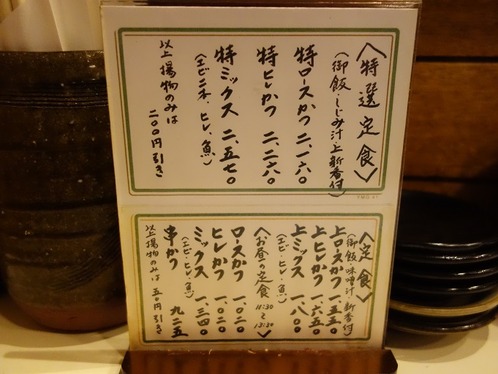 〈特選定食〉
(御飯・しじみ汁 上新香付)
特ロースかつ 二、一六〇
特ヒレかつ 二、二六〇
特ミックス 二、五七〇
(エビ二本、ヒレ、魚)
以上揚物のみは
二〇〇円引き
〈定食〉
(御飯・味噌汁・新香付)
上ロースかつ 一、五五〇
上ヒレかつ 一、六五〇
上ミックス 一、八〇〇
(エビ・ヒレ・魚)
〈お昼の定食 11:30〜13:30〉
ロースかつ 一、〇二〇
ヒレかつ 一、〇二〇
ミックス 一、三四〇
(エビ、ヒレ、魚)
串かつ 九二五
以上揚物のみは 五〇円引き